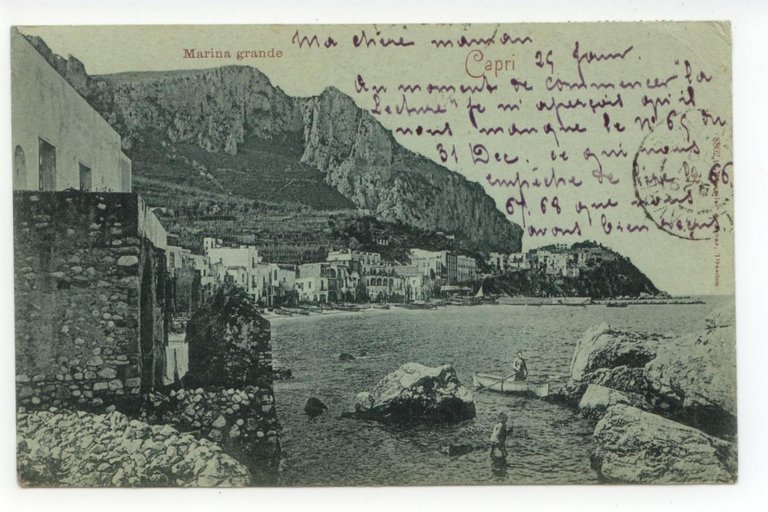 Marina grande
Ma chère maman
Capri 29 Janv.
Au moment de commencer "la
lecture" je m'aperçois qu'il
nous manque le N° 65 du
31 Dec. ce qui nous
empêche de lire le 66
67 68 que nous
avons bien reçus